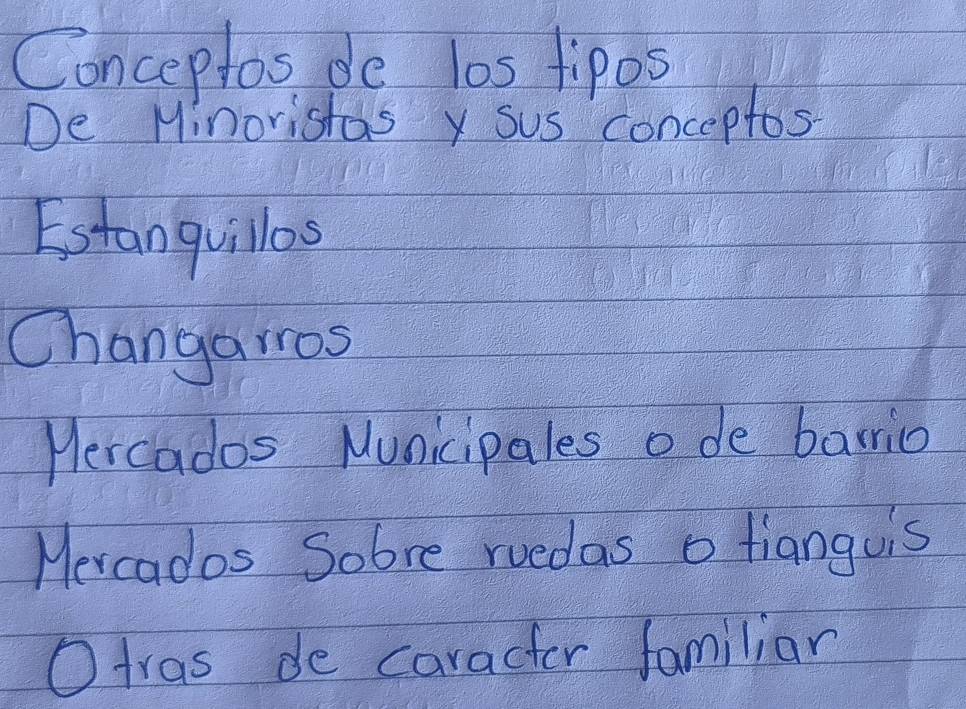 Conceptos de los tipos
De Minoristas y sus conceptos
Estanquillos
Changarros
Mercados Municipales o de barrio
Mercados Sobre ruedas o tianguis
Otras de caracter familiar